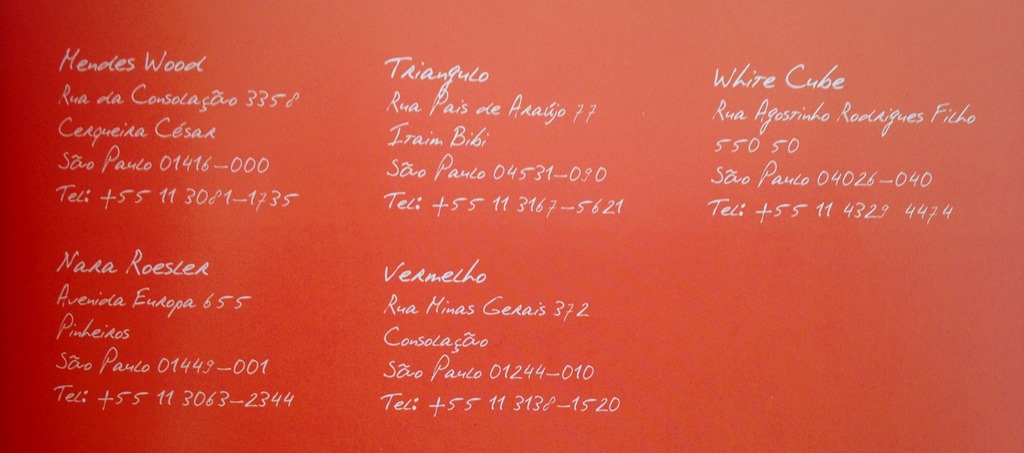 Mendes Wood
Rua da Consolação 3358
Cerqueira César
São Paulo 01416-000
Tel: +55 11 3081-1735
Triangulo
Rua Pais de Araújo 77
Itaim Bibi
São Paulo 04531-090
Tel: +55 11 3167-5621
White Cube
Rua Agostinho Rodrigues Filho
550 50
São Paulo 04026-040
Tel: +55 11 4329 4474
Nara Roesler
Avenida Europa 655
Pinheiros
São Paulo 01449-001
Tel: +55 11 3063-2344
Vermelho
Rua Minas Gerais 372
Consolação
São Paulo 01244-010
Tel: +55 11 3138-1520